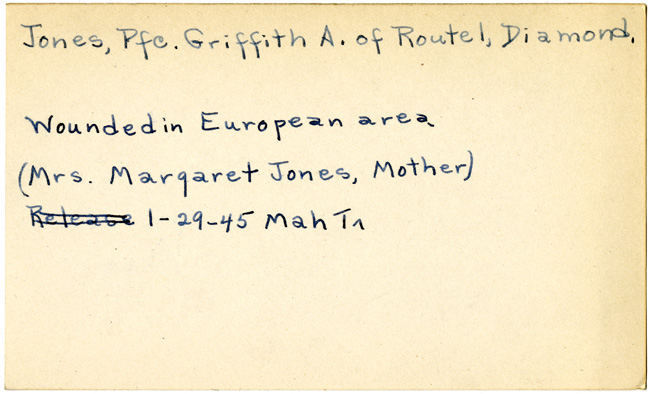 Jones, Pfc. Griffith A. of Route 1, Diamond.
Wounded in European area
(Mrs. Margaret Jones, Mother)
Release 1-29-45 Mah Tr